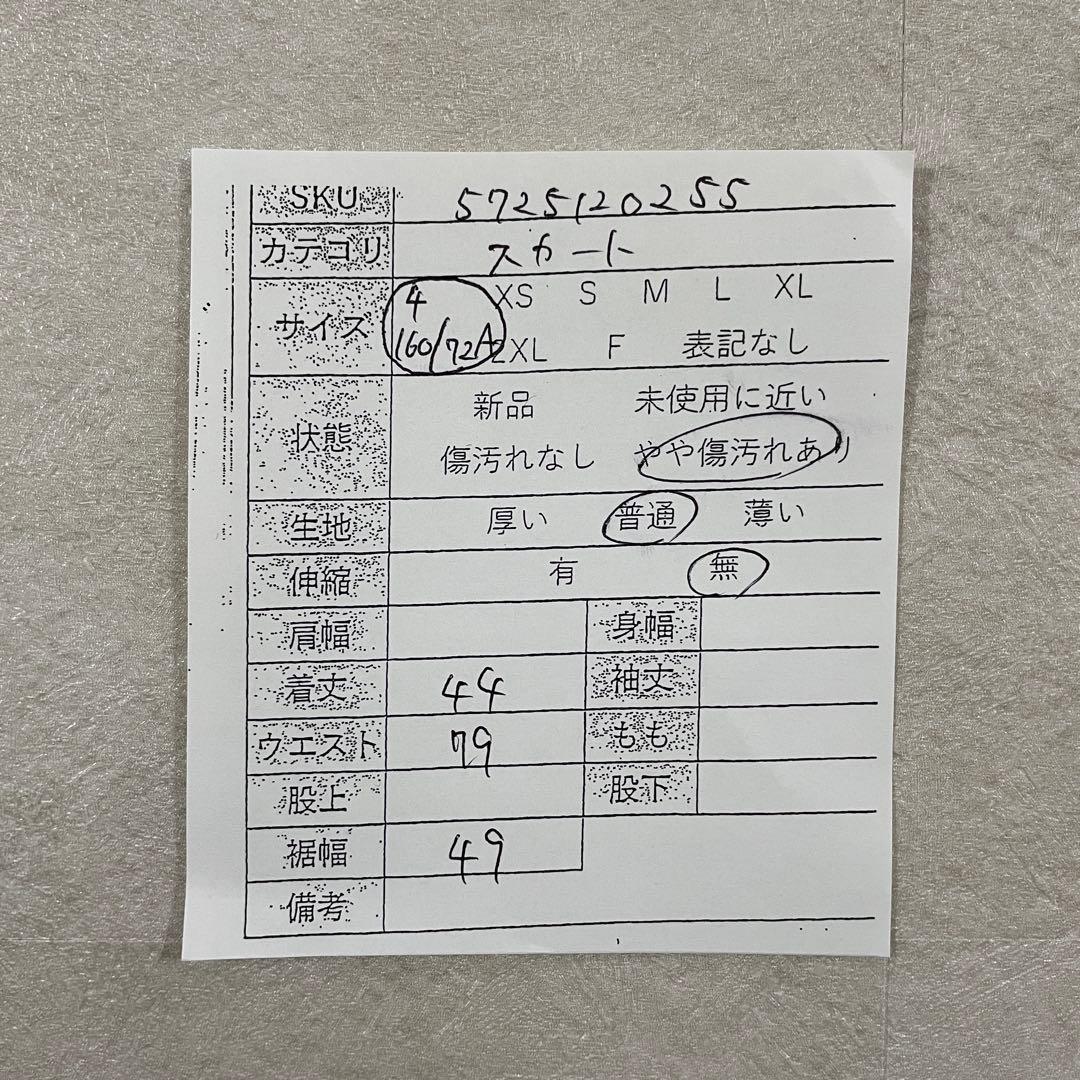 SKU 5725120255
カテゴリ スカート
サイズ 4 XS S M L XL
160/72A 2XL F 表記なし
状態 新品 未使用に近い
傷汚れなし やや傷汚れあり
生地 厚い 普通 薄い
伸縮 有 無
肩幅 身幅
着丈 44 袖丈
ウエスト 79 もも
股上 股下
裾幅 49
備考